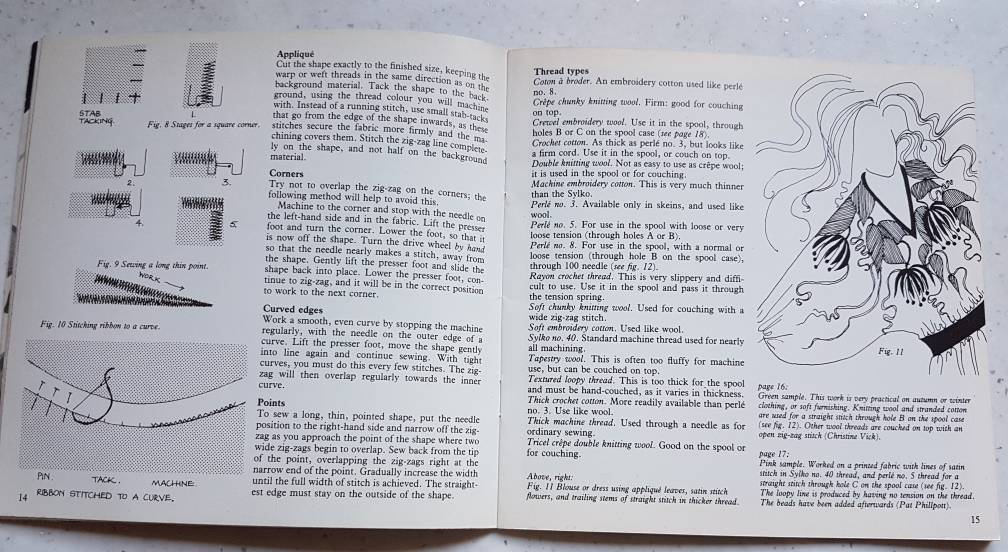 STAB
TACKING.
1.
Fig. 8 Stages for a square corner.
2.
3.
4.
5.
Fig. 9 Sewing a long thin point.
WORK
Fig. 10 Stitching ribbon to a curve.
PIN
TACK.
MACHINE.
RIBBON STITCHED TO A CURVE.
14
Appliqué
Cut the shape exactly to the finished size, keeping the
warp or weft threads in the same direction as on the
background material. Tack the shape to the back-
ground, using the thread colour you will machine
with. Instead of a running stitch, use small stab-tacks
that go from the edge of the shape inwards, as these
stitches secure the fabric more firmly and the ma-
chining covers them. Stitch the zig-zag line complete-
ly on the shape, and not half on the background
material.
Corners
Try not to overlap the zig-zag on the corners; the
following method will help to avoid this.
Machine to the corner and stop with the needle on
the left-hand side and in the fabric. Lift the presser
foot and turn the corner. Lower the foot, so that it
is now off the shape. Turn the drive wheel by hand
so that the needle nearly makes a stitch, away from
the shape. Gently lift the presser foot and slide the
shape back into place. Lower the presser foot, con-
tinue to zig-zag, and it will be in the correct position
to work to the next corner.
Curved edges
Work a smooth, even curve by stopping the machine
regularly, with the needle on the outer edge of a
curve. Lift the presser foot, move the shape gently
into line again and continue sewing. With tight
curves, you must do this every few stitches. The zig-
zag will then overlap regularly towards the inner
curve.
Points
To sew a long, thin, pointed shape, put the needle
position to the right-hand side and narrow off the zig-
zag as you approach the point of the shape where two
wide zig-zags begin to overlap. Sew back from the tip
of the point, overlapping the zig-zags right at the
narrow end of the point. Gradually increase the width
until the full width of stitch is achieved. The straight-
est edge must stay on the outside of the shape.
Thread types
Coton à broder. An embroidery cotton used like perlé
no. 8.
Crêpe chunky knitting wool. Firm: good for couching
on top.
Crewel embroidery wool. Use it in the spool, through
holes B or C on the spool case (see page 18).
Crochet cotton. As thick as perlé no. 3, but looks like
a firm cord. Use it in the spool, or couch on top.
Double knitting wool. Not as easy to use as crêpe wool;
it is used in the spool or for couching.
Machine embroidery cotton. This is very much thinner
than the Sylko.
Perlé no. 3. Available only in skeins, and used like
wool.
Perlé no. 5. For use in the spool with loose or very
loose tension (through holes A or B).
Perlé no. 8. For use in the spool, with a normal or
loose tension (through hole B on the spool case),
through 100 needle (see fig. 12).
Rayon crochet thread. This is very slippery and diffi-
cult to use. Use it in the spool and pass it through
the tension spring.
Soft chunky knitting wool. Used for couching with a
wide zig-zag stitch.
Soft embroidery cotton. Used like wool.
Sylko no. 40. Standard machine thread used for nearly
all machining.
Tapestry wool. This is often too fluffy for machine
use, but can be couched on top.
Textured loopy thread. This is too thick for the spool
and must be hand-couched, as it varies in thickness.
Thick crochet cotton. More readily available than perlé
no. 3. Use like wool.
Thick machine thread. Used through a needle as for
ordinary sewing.
Tricel crêpe double knitting wool. Good on the spool or
for couching.
Above, right:
Fig. 11 Blouse or dress using appliqué leaves, satin stitch
flowers, and trailing stems of straight stitch in thicker thread.
Fig. 11
page 16:
Green sample. This work is very practical on autumn or winter
clothing, or soft furnishing. Knitting wool and stranded cotton
are used for a straight stitch through hole B on the spool case
(see fig. 12). Other wool threads are couched on top with an
open zig-zag stitch (Christine Vick).
page 17:
Pink sample. Worked on a printed fabric with lines of satin
stitch in Sylko no. 40 thread, and perlé no. 5 thread for a
straight stitch through hole C on the spool case (see fig. 12).
The loopy line is produced by having no tension on the thread.
The beads have been added afterwards (Pat Phillpott).
15